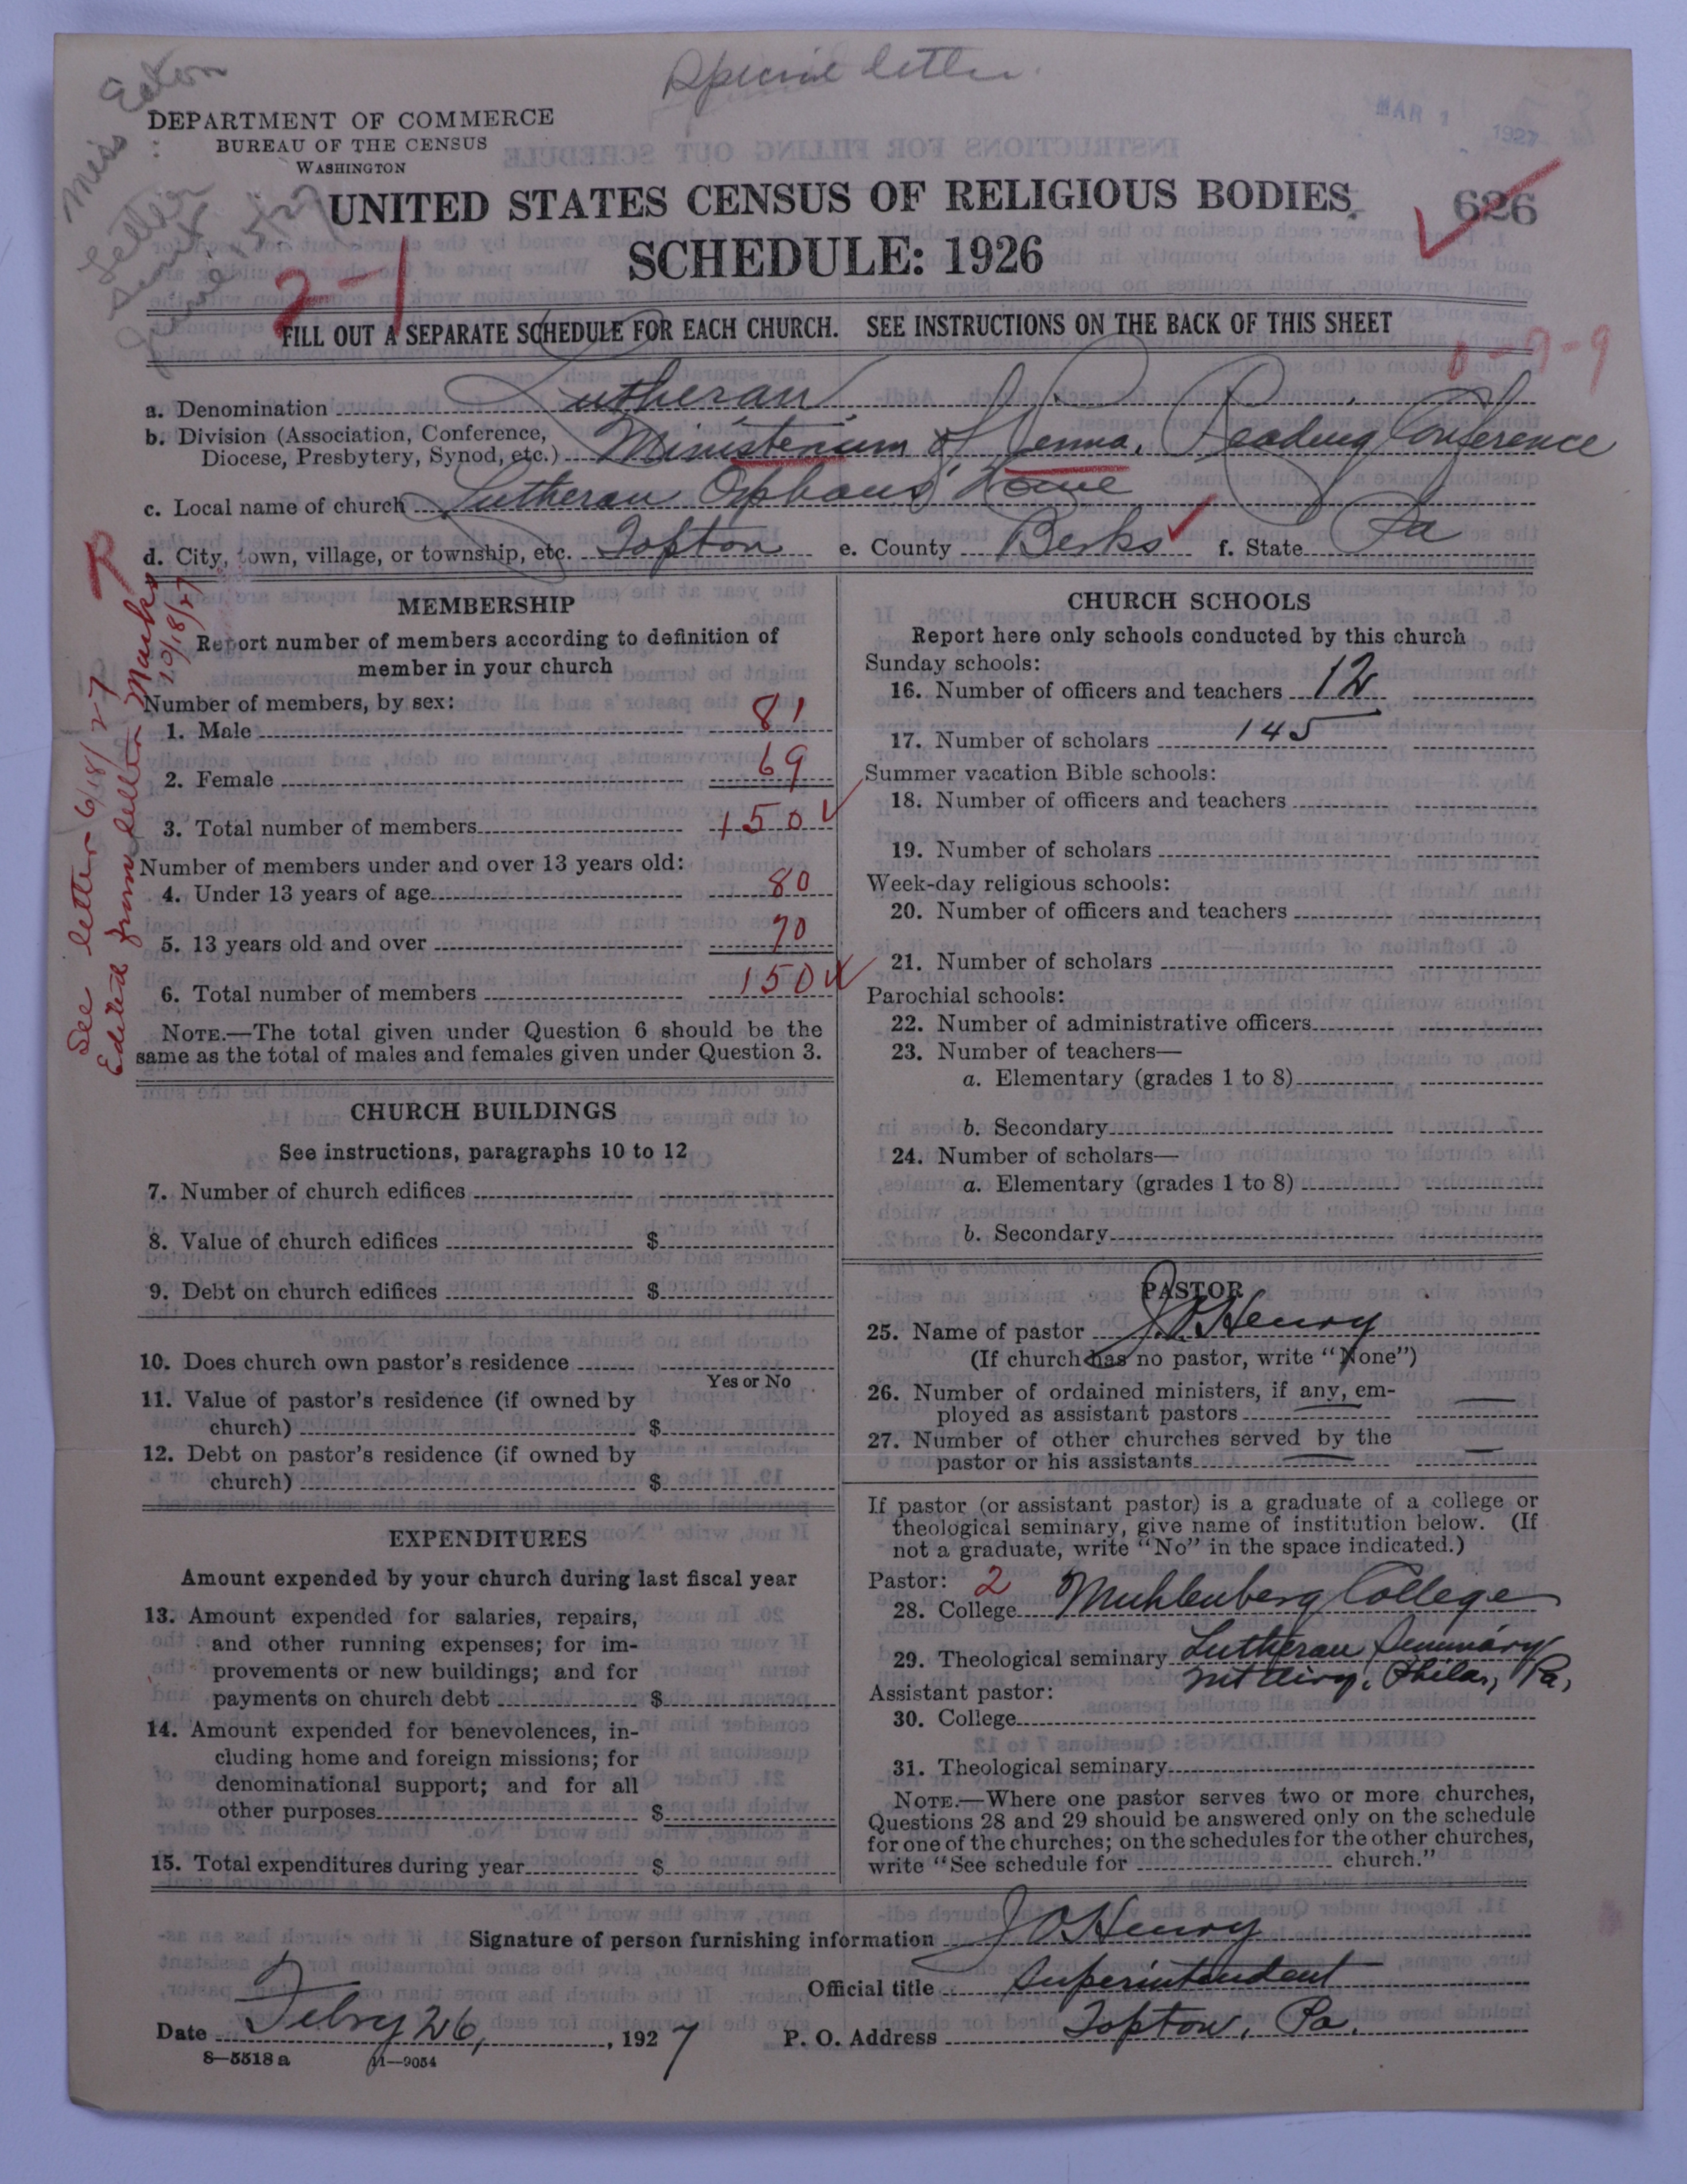 Special letter.
Miss Eaton
Letter
sent
June 15/27
MAR 1 1927
DEPARTMENT OF COMMERCE
BUREAU OF THE CENSUS
WASHINGTON
UNITED STATES CENSUS OF RELIGIOUS BODIES
626
SCHEDULE: 1926
2-1
FILL OUT A SEPARATE SCHEDULE FOR EACH CHURCH. SEE INSTRUCTIONS ON THE BACK OF THIS SHEET
0-9-9
a. Denomination Lutheran
b. Division (Association, Conference, Diocese, Presbytery, Synod, etc.) Ministerium of Penna. Reading Conference
c. Local name of church Lutheran Orphans' Home
d. City, town, village, or township, etc. Topton e. County Berks f. State Pa
See letter 6/18/27
Edited from letter Marks 10/18/27
MEMBERSHIP
Report number of members according to definition of
member in your church
Number of members, by sex:
1. Male 81
2. Female 69
3. Total number of members 150
Number of members under and over 13 years old:
4. Under 13 years of age 80
5. 13 years old and over 70
6. Total number of members 150
NOTE.—The total given under Question 6 should be the
same as the total of males and females given under Question 3.
CHURCH BUILDINGS
See instructions, paragraphs 10 to 12
7. Number of church edifices
8. Value of church edifices $
9. Debt on church edifices $
10. Does church own pastor's residence
Yes or No
11. Value of pastor's residence (if owned by
church) $
12. Debt on pastor's residence (if owned by
church) $
EXPENDITURES
Amount expended by your church during last fiscal year
13. Amount expended for salaries, repairs,
and other running expenses; for im-
provements or new buildings; and for
payments on church debt $
14. Amount expended for benevolences, in-
cluding home and foreign missions; for
denominational support; and for all
other purposes $
15. Total expenditures during year $
CHURCH SCHOOLS
Report here only schools conducted by this church
Sunday schools:
16. Number of officers and teachers 12
17. Number of scholars 145
Summer vacation Bible schools:
18. Number of officers and teachers
19. Number of scholars
Week-day religious schools:
20. Number of officers and teachers
21. Number of scholars
Parochial schools:
22. Number of administrative officers
23. Number of teachers—
a. Elementary (grades 1 to 8)
b. Secondary
24. Number of scholars—
a. Elementary (grades 1 to 8)
b. Secondary
PASTOR
25. Name of pastor J.O. Henry
(If church has no pastor, write "None")
26. Number of ordained ministers, if any, em-
ployed as assistant pastors —
27. Number of other churches served by the
pastor or his assistants —
If pastor (or assistant pastor) is a graduate of a college or
theological seminary, give name of institution below. (If
not a graduate, write "No" in the space indicated.)
Pastor: 2
28. College Muhlenberg College
29. Theological seminary Lutheran Seminary
Mt Airy, Phila, Pa,
Assistant pastor:
30. College
31. Theological seminary
NOTE.—Where one pastor serves two or more churches,
Questions 28 and 29 should be answered only on the schedule
for one of the churches; on the schedules for the other churches,
write "See schedule for church."
Signature of person furnishing information J O Henry
Official title Superintendent
Date Febry 26, 1927 P. O. Address Topton, Pa.
8—5518 a 11—9054